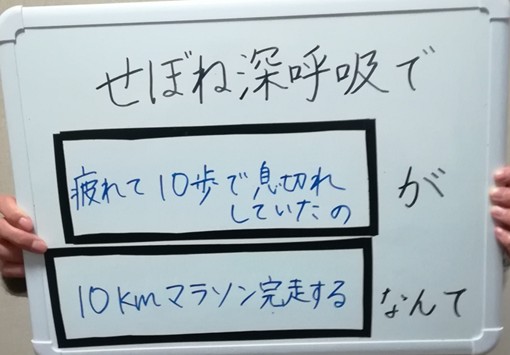 せぼね深呼吸で
疲れて10歩で息切れ
していたの が
10kmマラソン完走する なんて